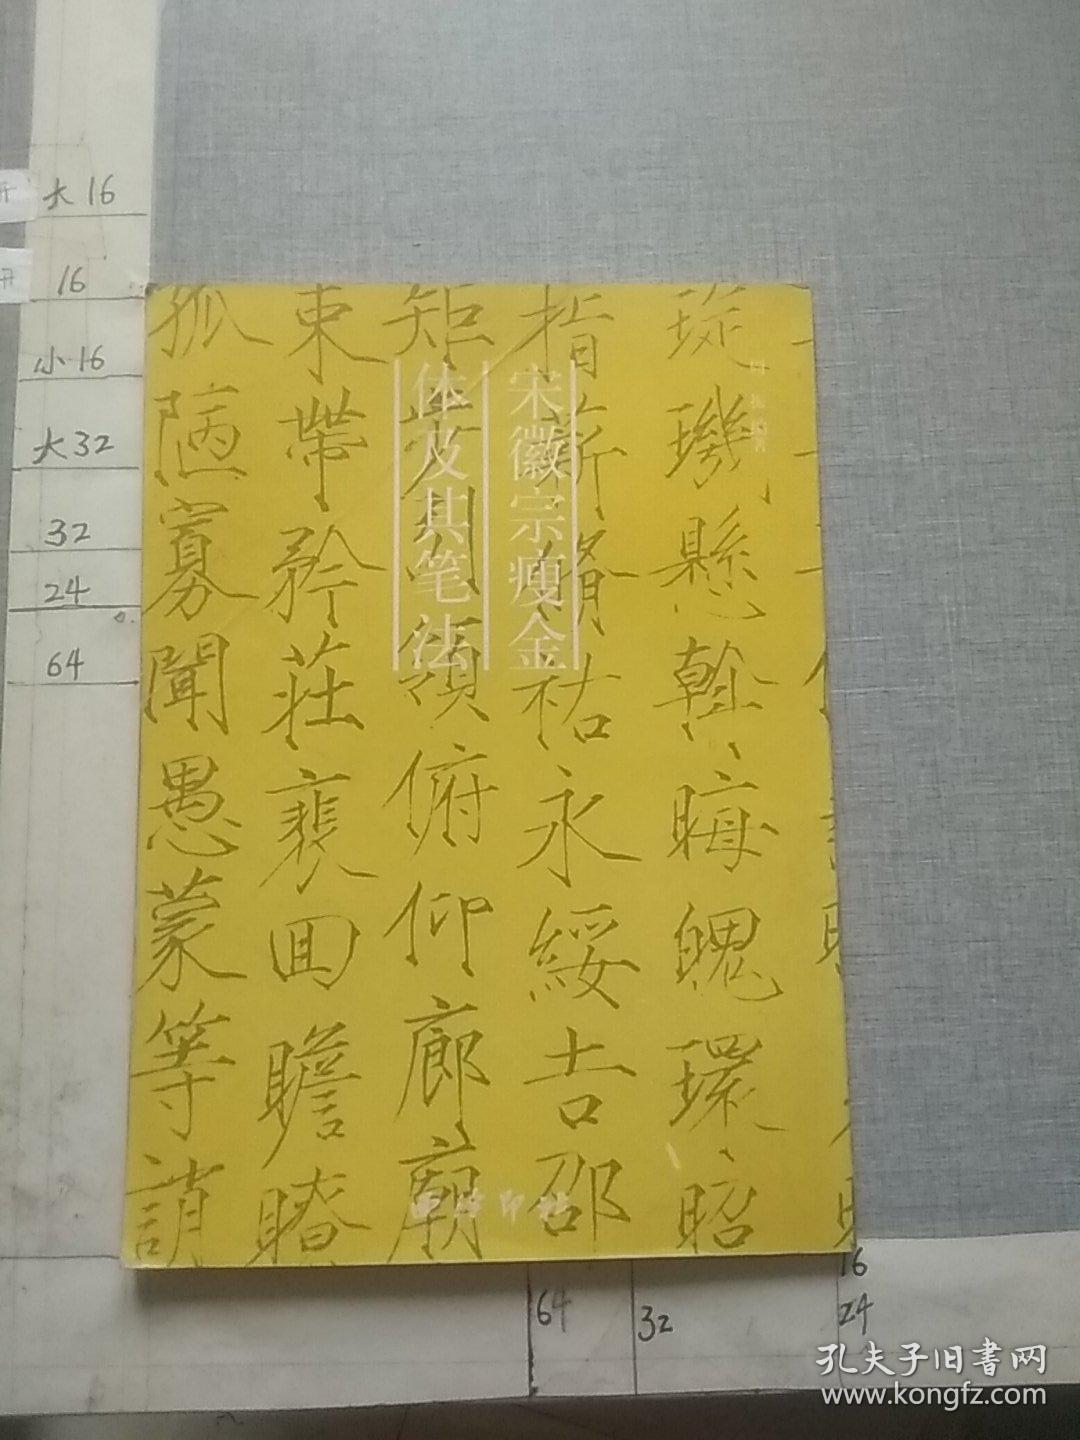 大16
16
小16
大32
32
24
64
宋徽宗瘦金
体及其笔法
璇璣懸斡晦魄環照
指薪修祜永綏吉邵
矩步引領俯仰廊廟
束帶矜莊裴回瞻眺
孤陋寡聞愚蒙等誚
西泠印社
64
32
16
24
孔夫子旧書网
www.kongfz.com